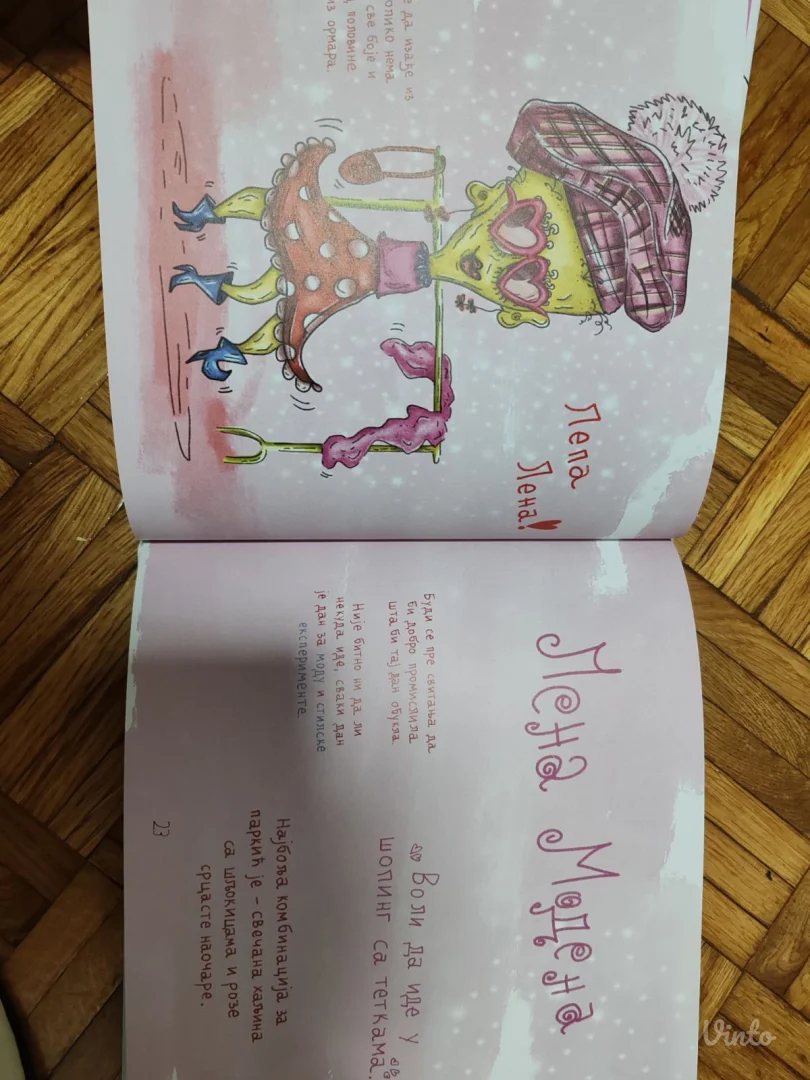 е да изађе из
олико нема
све боје и
половине
из ормара
Лепа
Лена!
Лена Модена
Буди се пре свитања да
би добро промислила
шта би тај дан обукла.
Није битно ни да ли
некуда иде, сваки дан
је дан за моду и стилске
експерименте
Воли да иде у
шопинг са теткама.
Најбоља комбинација за
паркић је - свечана хаљина
са шљокицама и розе
срцасте наочаре.
23
Vinto